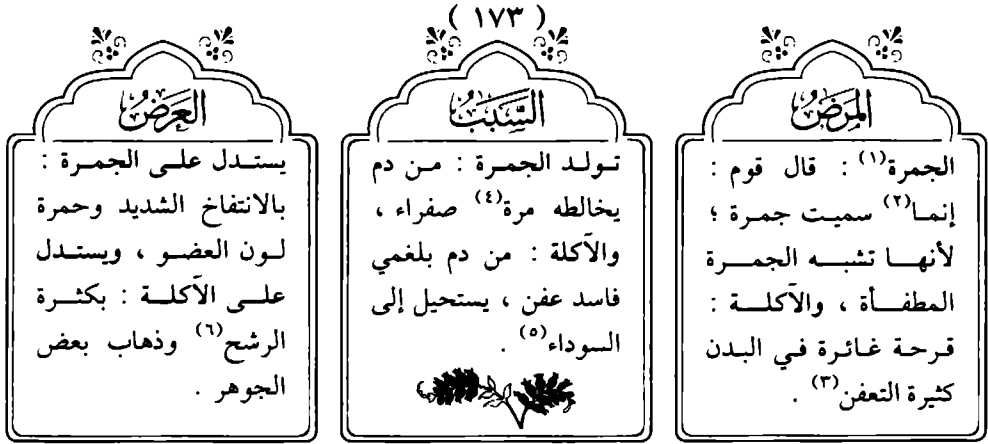 ( ١٧٣ )
المَرَضُ
الجمرة(١) : قال قوم :
إنما(٢) سميت جمرة ؛
لأنها تشبه الجمرة
المطفأة ، والآكلة :
قرحة غائرة في البدن
كثيرة التعفن(٣) .
السَّبَبُ
تولد الجمرة : من دم
يخالطه مرة(٤) صفراء ،
والآكلة : من دم بلغمي
فاسد عفن ، يستحيل إلى
السوداء(٥) .
العَرَضُ
يستدل على الجمرة :
بالانتفاخ الشديد وحمرة
لون العضو ، ويستدل
على الآكلة : بكثرة
الرشح(٦) وذهاب بعض
الجوهر .